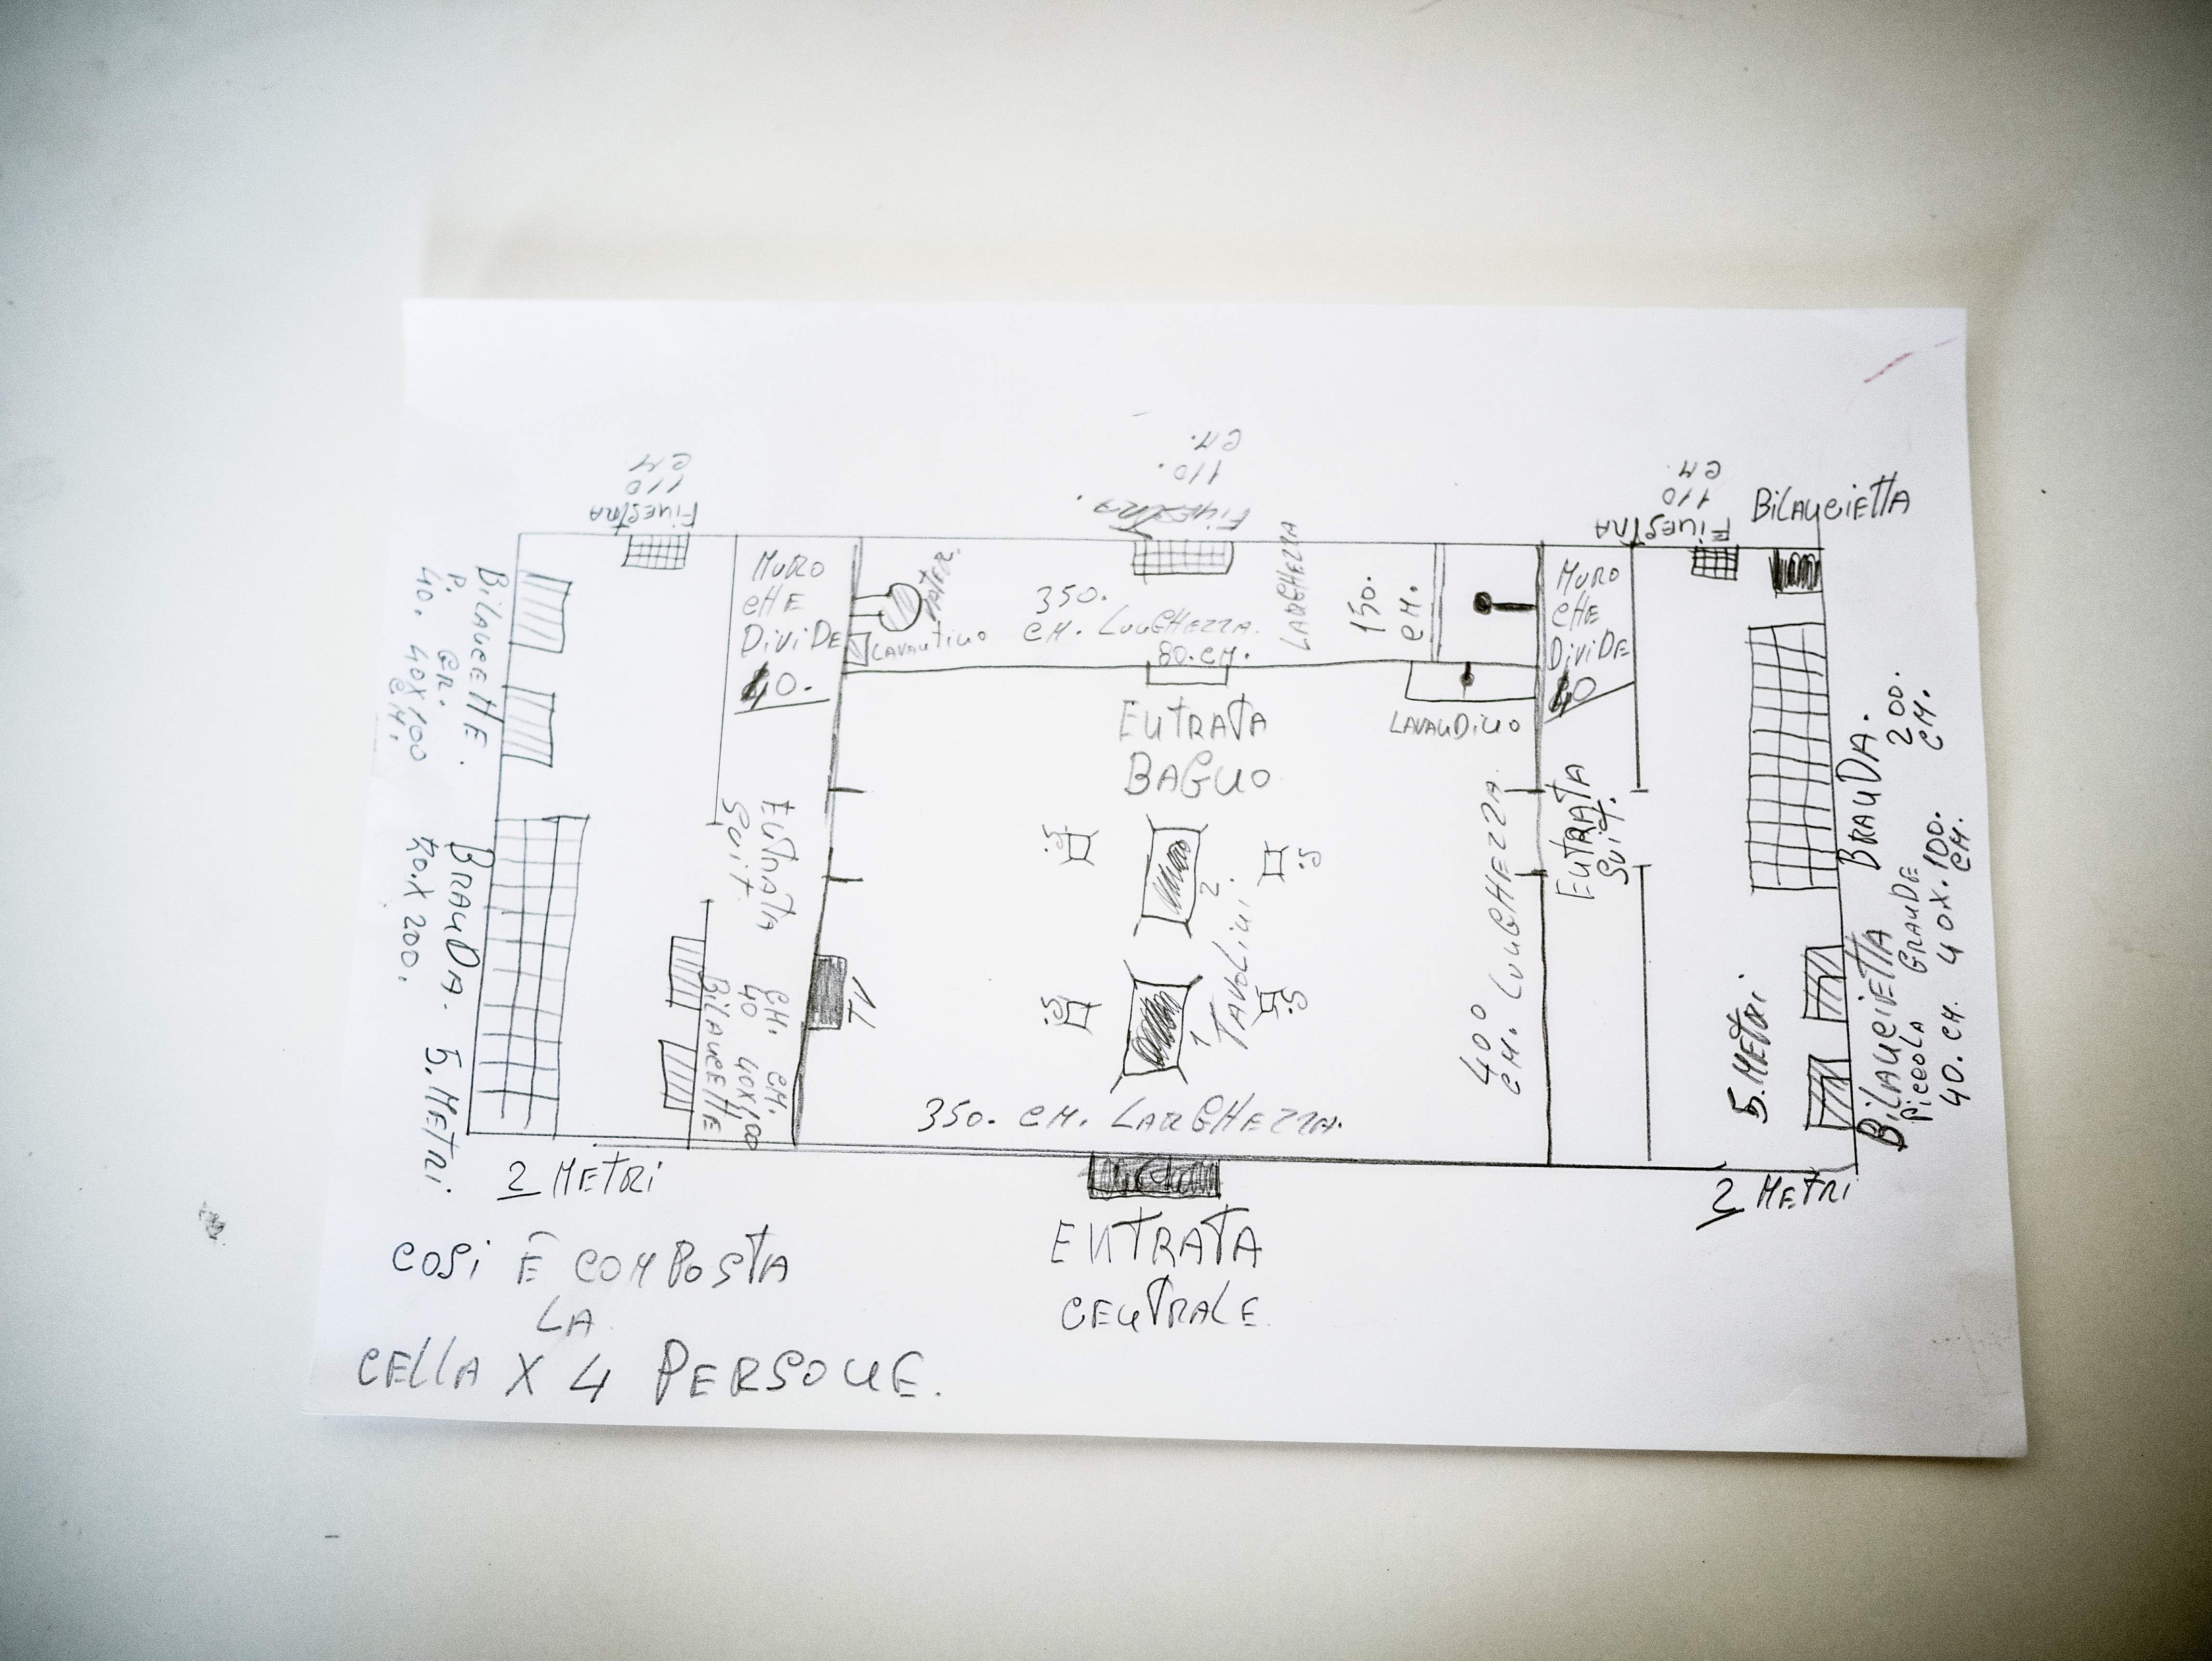 FINESTRA
110
CM
FINESTRA
110.
CM.
FINESTRA
110
CM
BILANCIETTA
BILANCETTE
P. GR.
40. 40X100
CM.
BRANDA. 5. METRI
70.X 200.
MURO
CHE
DIVIDE
40.
WATER.
LAVANTINO
350.
CM. LUNGHEZZA.
80. CM.
LARGHEZZA
150.
CM.
MURO
CHE
DIVIDE
40
ENTRATA
BAGNO
LAVANDINO
ENTRATA
SUIT.
CM. CM.
40 40X100
BILANCETTE
TV
S
S
S
S
2
1
TAVOLINI
400
CM. LUNGHEZZA.
ENTRATA
SUIT.
5. METRI
BRANDA. 200.
CM.
BILANCIETTA
PICCOLA GRANDE
40. CM. 40X.100.
CM.
350. CM. LARGHEZZA.
2 METRI
2 METRI
ENTRATA
CENTRALE
COSI È COMPOSTA
LA
CELLA X 4 PERSONE.